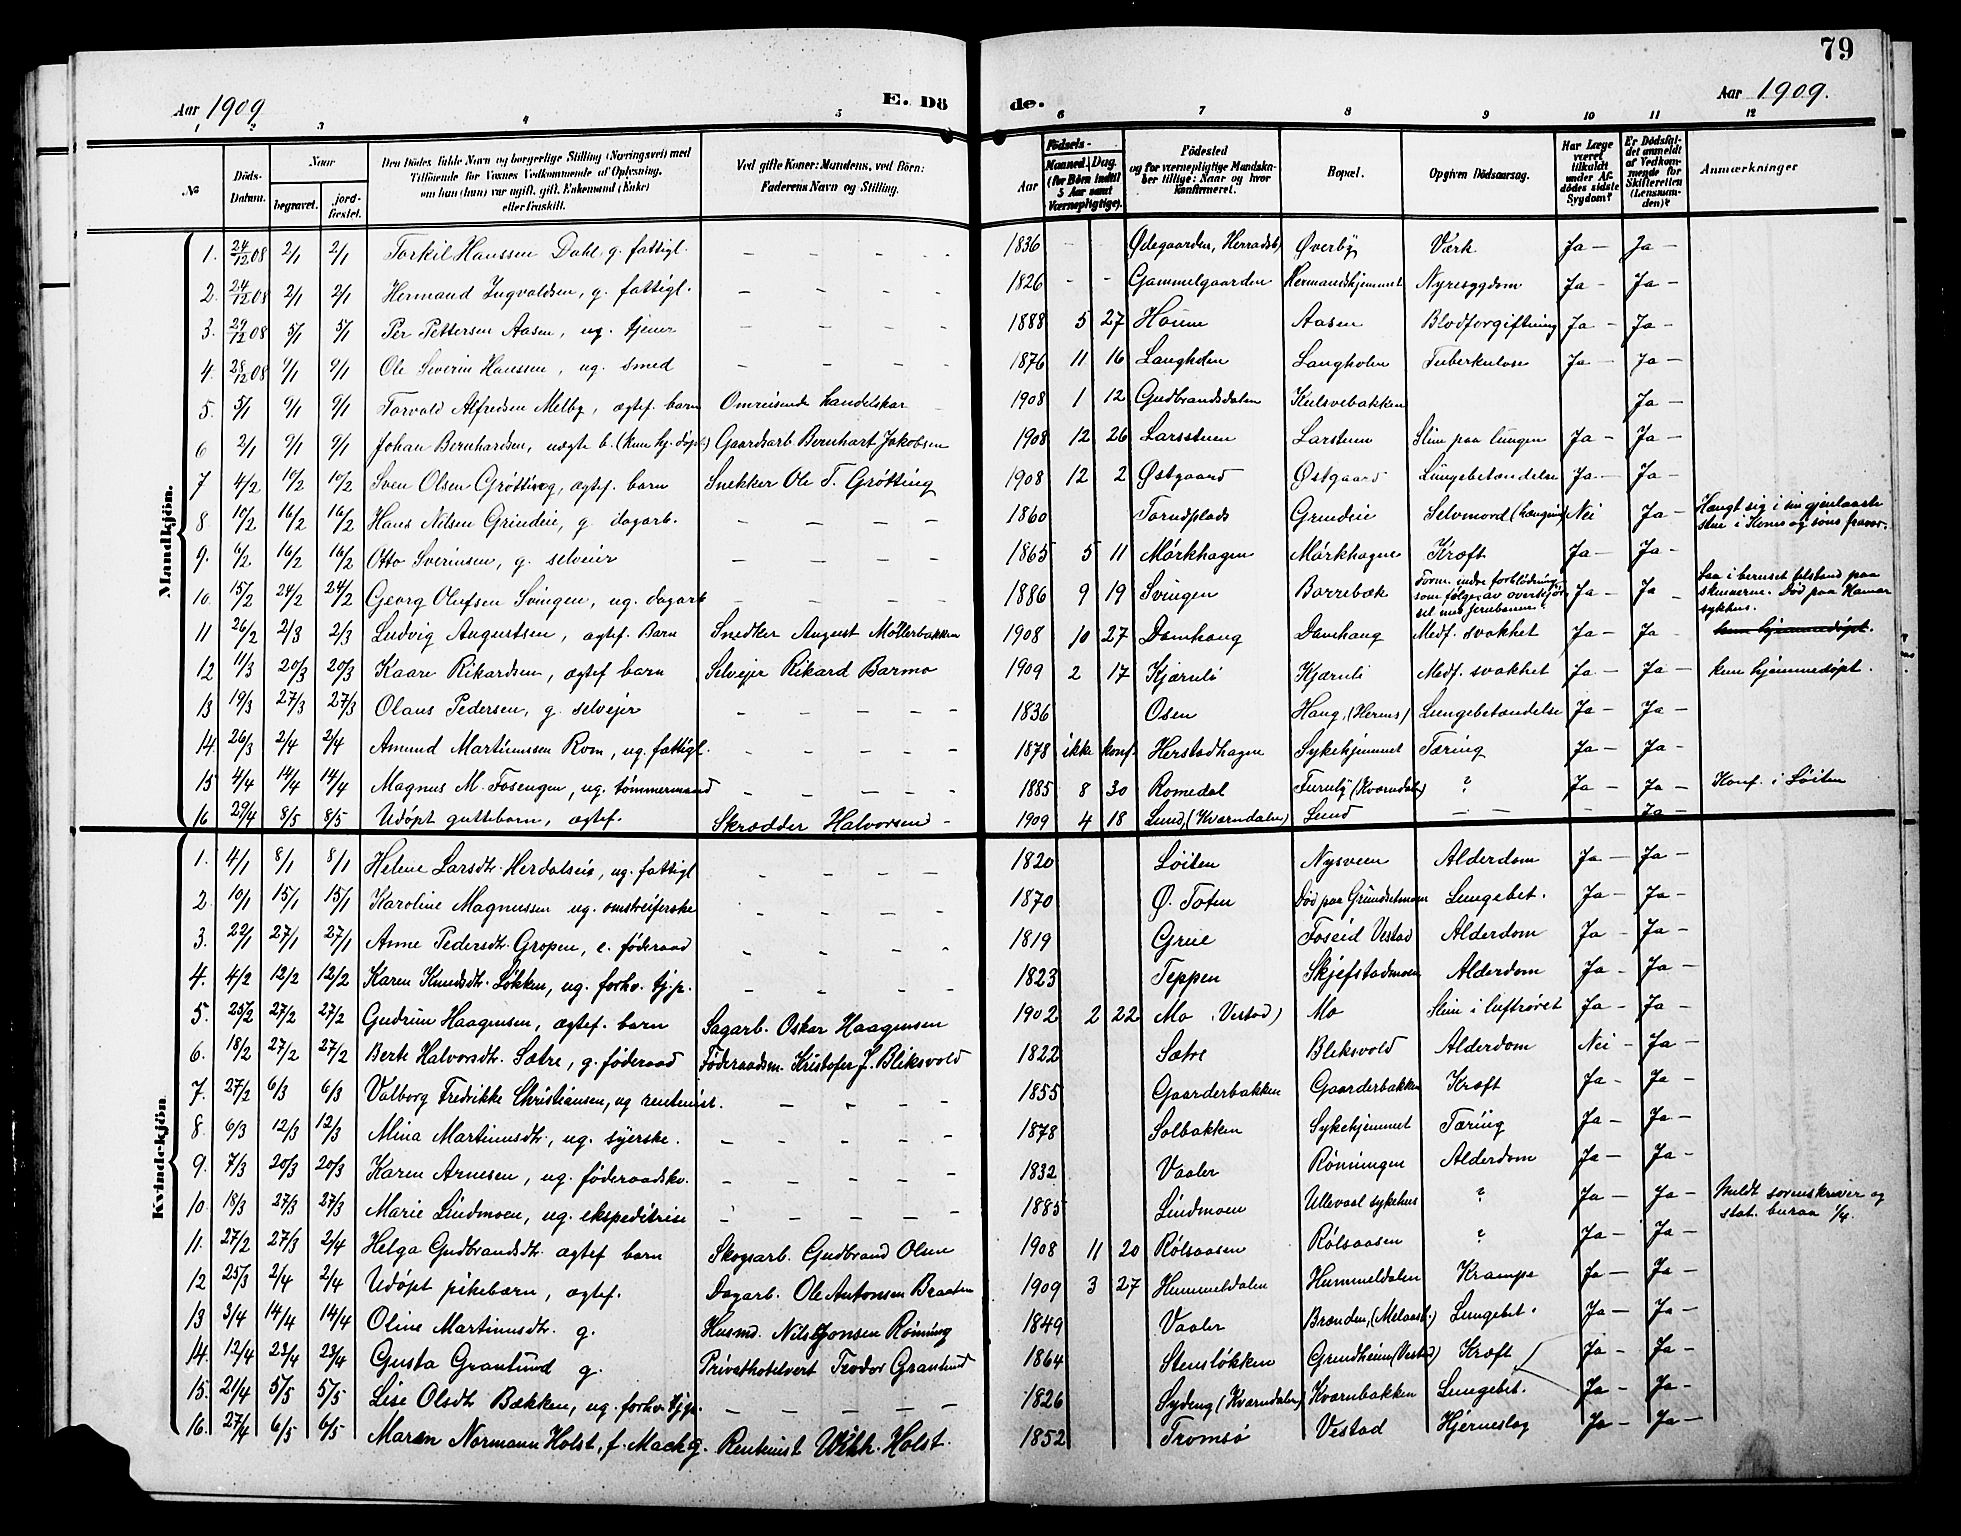 79
Aar 1909 E. Dö de. Aar 1909.
1 2 3 4 5 6 7 8 9 10 11 12
No Döds-Datum. Naar begravet. jord-fæstet. Den Dödes fulde Navn og borgerlige Stilling (Næringsvei) med Tilföiende for Voxnes Vedkommende af Oplysning, om han (hun) var ugift, gift, Enkemand (Enke) eller fraskilt. Ved gifte Koner: Mandens, ved Börn: Faderens Navn og Stilling. Födsels- Aar Maaned. Dag. (for Börn indtil 5 Aar samt Værnepligtige). Födested og for værnepligtige Mandskaber tillige: Naar og hvor Konfirmeret. Bopæl. Opgiven Dödsaarsag. Har Læge været tilkaldt under Afdödes sidste Sygdom? Er Dödsfaldet anmeldt af Vedkommende for Skifteretten (Lensmanden)? Anmærkninger
Mandkjön.
1. 24/12 08 2/1 2/1 Torkil Hanssen Dahl, g. fattigl. – – – – 1836 – – Ødegaarden, Herradsb) Øverby Værk Ja – Ja –
2. 24/12 08 2/1 2/1 Hermand Ingvaldsen, g. fattigl. – – – – 1826 – – Gammelgaarden Hermandshjemmet Nyresygdom Ja – Ja –
3. 29/12 08 5/1 5/1 Per Pettersen Aasen, ug. tjener – – – – 1888 5 27 Aasen Blodforgiftning Ja – Ja –
4. 28/12 08 9/1 9/1 Ole Severin Hanssen, ug. smed – – – – 1876 11 16 Langholen Langholen Tuberkulose Ja – Ja –
5. 5/1 9/1 9/1 Torvald Alfredsen Melby, ægtef. barn Omreisende handelskar 1908 1 12 Gudbrandsdalen Kulsvebakken Ja –
6 2/1 9/1 9/1 Johan Bernhardsen, uægte b. (kun hj. døpt.) Gaardsarb Bernhart Jakobsen 1908 12 26 Larsstuen Larstuen Slim paa lungen Ja – Ja –
7 4/2 10/2 10/2 Sven Olsen Grøtting, ægtef. barn Snekker Ole T. Grøtting 1908 12 2 Østgaard Østgaard Lungebetændelse Ja – Ja –
8. 10/2 16/2 16/2 Hans Nilsen Grindeie, g dagarb. – – – – 1860 Grindeie Selvmord (hængning) Nei Ja – Hængt sig i sin gjenlaaste stue i Kones og søns fravær.
9. 6/2 16/2 16/2 Otto Sverinsen, g. selveier – – – – 1865 5 11 Mørkhagen Mørkhagen Kræft Ja – Ja –
10. 15/2 24/2 24/2 Georg Olufsen Svingen, ug. dagarb – – – – 1886 9 19 Svingen Borrebæk Form. indre forblødning som følge av overkjørsel med jernbanen. Ja – Ja – Laa i beruset tilstand paa skinnerne. Død paa Hamar sykhus.
11 26/2 2/3 2/3 Ludvig Augustsen, ægtef. Barn Snedker August Møllerbakken 1908 10 27 Damhaug Damhaug Medf. svakhet Ja – Ja – kun hjemmedøpt.
12 11/3 20/3 20/3 Kaare Rikardsen, ægtef barn Selvejer Rikard Barmo 1909 2 17 Kjærnli Kjærnli Medf. svakhet Ja – Ja – kun hjemmedøpt.
13 19/3 27/3 27/3 Olaus Pedersen, g. selvejer – – – – 1836 Osen Haug, (Hernes) Lungebetændelse Ja – Ja –
14. 26/3 2/4 2/4 Amund Martinussen Rom, ug. fattigl. – – – – 1878 ikke konf. Herstadhagen Sykehjemmet Tæring Ja – Ja –
15 4/4 14/4 14/4 Magnus M. Fosengen, ug. tømmermand – – – – 1885 8 30 Romedal Furuly (Kværndalen) ? Ja – Ja – Konf. i Løiten
16 29/4 8/5 8/5 Udøpt guttebarn, ægtef. Skrædder Halvorsen – 1909 4 18 Lund, (Kværndalen) Lund – – – Ja –
Kvindekjön.
1. 4/1 8/1 8/1 Helene Larsdtr. Herdalseie, ug. fattigl – – – – 1820 Løiten Nysveen Alderdom Ja – Ja –
2. 10/1 15/1 15/1 Karoline Magnussen ug. omstreiferske – – – – 1870 Ø. Toten Død paa Grundsetmoen Lungebet. Ja – Ja –
3. 22/1 27/1 27/1 Anne Pedersdtr. Gropen, e. føderaad – – – – 1819 Grue Foseid Vestad Alderdom Ja – Ja –
4. 4/2 12/2 12/2 Karen Knudsdtr. Løkken, ug. forhv. tj.p. – – – – 1823 Teppen Skjefstadmoen Alderdom Ja – Ja –
5. 25/2 27/2 27/2 Gudrun Haagensen, ægtef. barn Sagarb. Oskar Haagensen 1902 2 22 Mo (Vestad) Mo Slim i luftrøret Ja – Ja –
6. 18/2 27/2 27/2 Berte Halvorsdtr. Sætre, g. føderaad Føderaadsm. Kristofer J. Bliksvold 1822 Sætre Bleksvold Alderdom Nei – Ja –
7. 27/2 6/3 6/3 Valborg Fredrikke Christiansen, ug rentenist. – – – – 1855 Gaarderbakken Gaarderbakken Kræft Ja – Ja –
8. 6/3 12/3 12/3 Mina Martinusdtr., ug. syerske. – – – – 1878 Solbakken Sykehjemmet Tæring Ja – Ja –
9. 7/3 20/3 20/3 Karen Arnesen, ug. føderaadskv. – – – – 1832 Vaaler Rønningen Alderdom Ja – Ja –
10. 18/3 27/3 27/3 Marie Lindmoen, ug. ekspeditrise – – – – 1885 Lindmoen Ullevaal sykehus ? Ja – Ja – Meldt sorenskriver og stat. buraa 1/4.
11. 27/2 27/3 2/4 Helga Gudbrandsdtr. ægtef barn Skogsarb. Gudbrand Olsen 1908 11 20 Rølsaasen Rølsaasen ? Ja – Ja –
12 25/3 2/4 2/4 Udøpt pikebarn, ægtef. Dagarb. Ole Antonsen Braaten 1909 3 27 Hummeldalen Hummeldalen Krampe Ja – Ja –
13 3/4 14/4 14/4 Oline Martinusdtr. g. Husmd. Nils Jonsen Rønning 1849 Vaaler Brænden, (Melaasb.) Lungebet. Ja – Ja –
14. 12/4 23/4 23/4 Gusta Granlund g. Privathotelvert Teodor Granlund 1864 Stensløkken Grundheim (Vestad) Kræft Ja – Ja –
15. 21/4 5/5 5/5 Lise Olsdtr Bækken, ug. forhv. tj.p. – – – – 1826 Sydeng (Kværndalen) Kværnbakken Lungebet. Ja – Ja –
16. 27/4 6/5 6/5 Maren Normann Holst, f. Mack g. Rentenist Wilh. Holst. 1852 Tromsø Vestad Hjerneslag Ja – Ja –